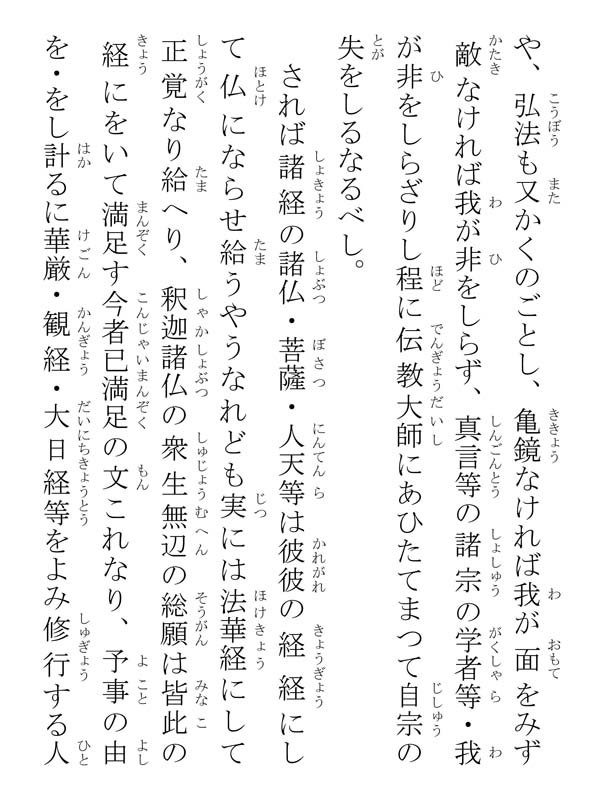 や、弘法も又かくのごとし、亀鏡なければ我が面をみず
敵なければ我が非をしらず、真言等の諸宗の学者等・我
が非をしらざりし程に伝教大師にあひたてまつて自宗の
失をしるなるべし。
されば諸経の諸仏・菩薩・人天等は彼彼の経経にし
て仏にならせ給うやうなれども実には法華経にして
正覚なり給へり、釈迦諸仏の衆生無辺の総願は皆此の
経にをいて満足す今者已満足の文これなり、予事の由
を・をし計るに華厳・観経・大日経等をよみ修行する人